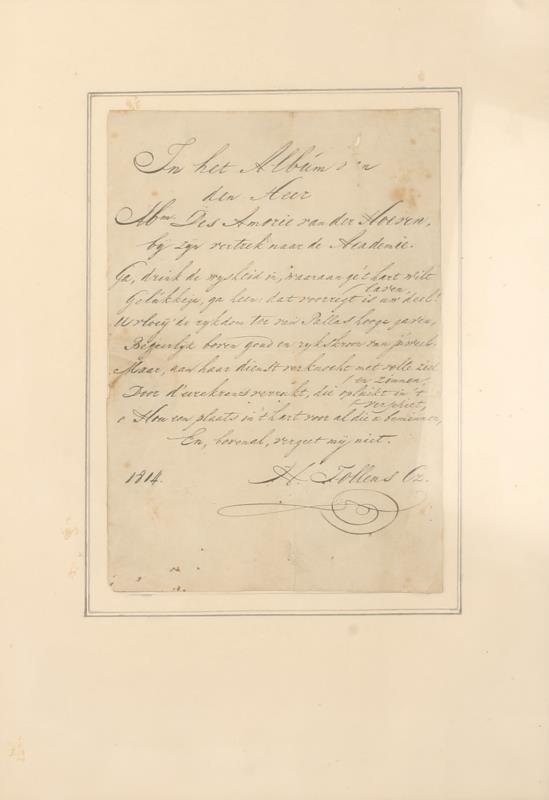 In het Album van
den Heer
Abm. Des Amorie van der Hoeven,
bij zijn vertrek naar de Academie.
Ga, drink de wysheid in, waaraan ge 't hart wilt
laven,
Gelukkige, ga heen: dat voorregt is uw deel!
U vloeij' de rykdom toe van Pallas hooge gaven,
Begeerlyk boven goud en
Maar, aan haar dienst verknocht met volle ziel
en zinnen,
Door d'eerekrans verrukt, die opluikt in 't
verschiet,
o Hou een plaats in 't hart voor al die u beminnen,
En, bovenal, vergeet mij niet.
1814.
H. Tollens Cz.